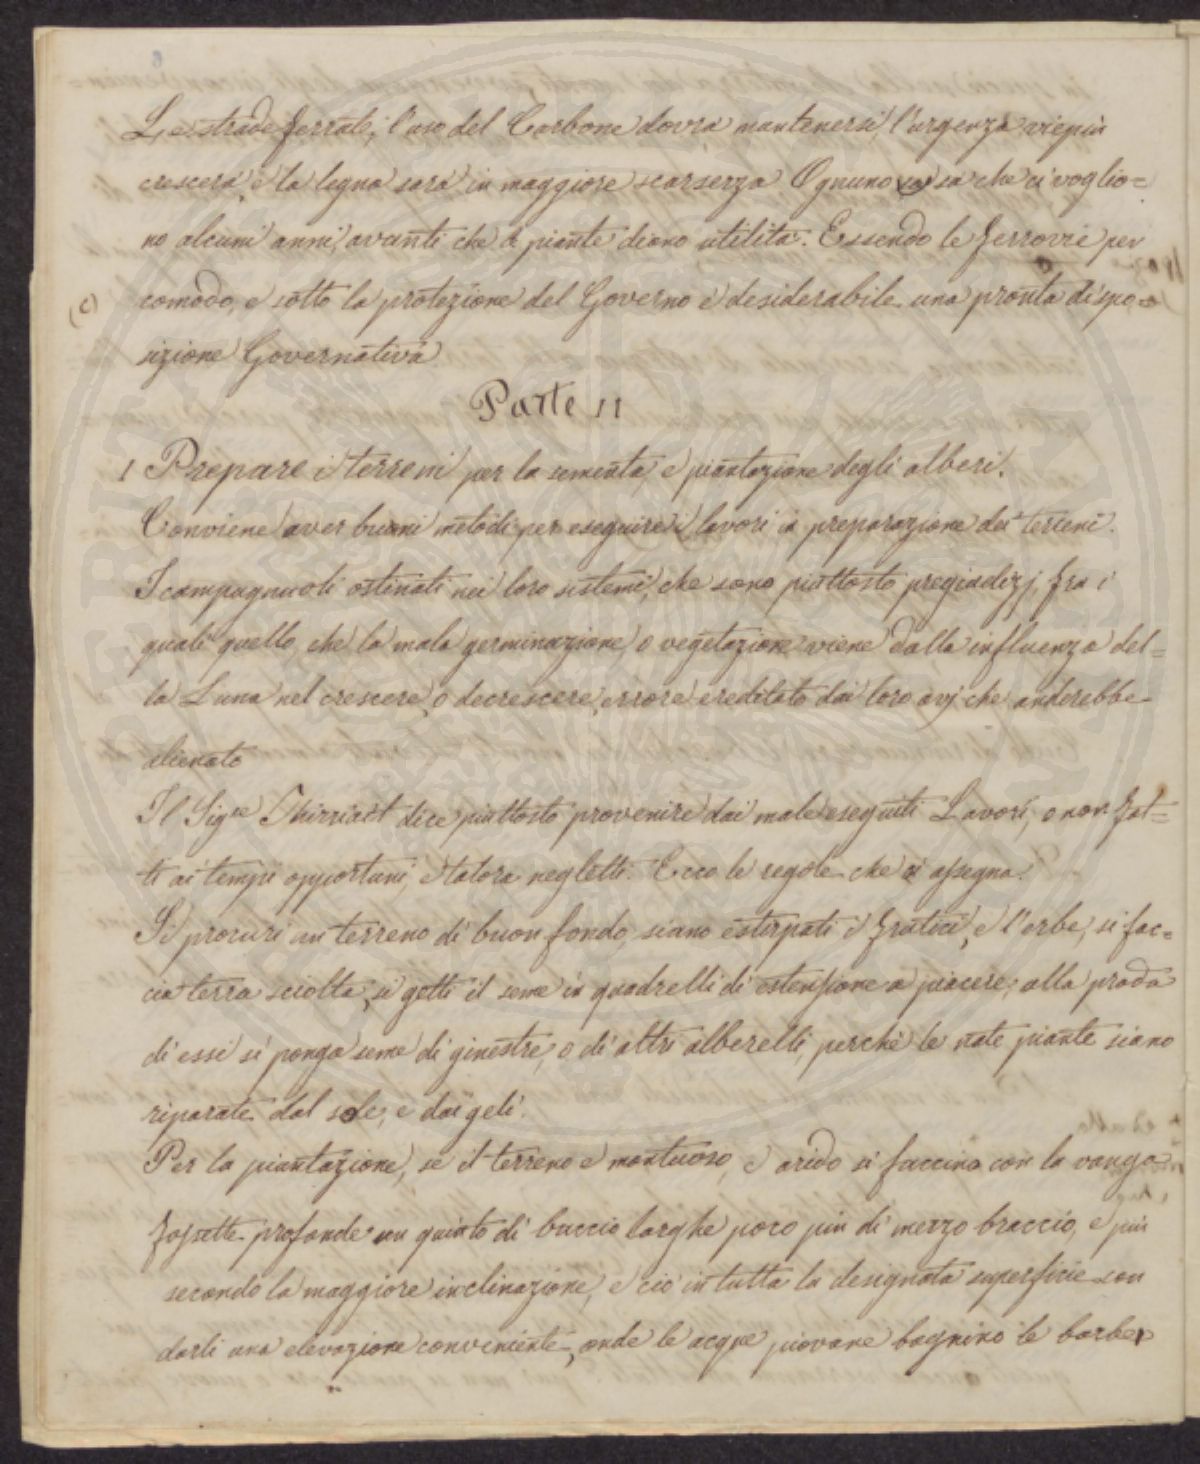 Le strade ferrate, l'uso del Carbone dovrà mantenersi, l'urgenza viepiù
crescerà, e la legna sarà in maggiore scarsezza. Ognuno sa che ci voglio=
no alcuni anni, avanti che le piante diano utilità. Essendo le ferrovie per
(c) comodo, e sotto la protezione del Governo è desiderabile una pronta dispo=
sizione Governativa
Parte II
1 Prepare i terreni per la sementa, e piantazione degli alberi.
Conviene aver buoni metodi per eseguire i lavori in preparazione dei terreni.
I campagnuoli ostinati nei loro sistemi, che sono piuttosto pregiudizj, fra i
quali quello, che la mala germinazione, o vegetazione viene dalla influenza del=
la Luna nel crescere, o decrescere, errore ereditato dai loro avj che anderebbe
alienato
Il Sigre Thirriart dice piuttosto provenire dai male eseguiti Lavori, o non fat=
ti ai tempi opportuni, e talora negletti. Ecco le regole che ci assegna.
Si procuri un terreno di buon fondo, siano estirpati i frutici, e l'erbe, si fac=
cia terra sciolta, si getti il seme in quadrelli di estensione a piacere; alla proda
di essi si ponga seme di ginestre, o di altri alberelli, perchè le nate piante siano
riparate dal sole, e dai geli.
Per la piantazione, se il terreno è montuoso, e arido si faccino con la vanga
fossette profonde un quinto di braccio larghe poco più di mezzo braccio, e più
secondo la maggiore inclinazione, e ciò in tutta la designata superficie con
darli una elevazione conveniente, onde le acque piovane bagnino le barbe